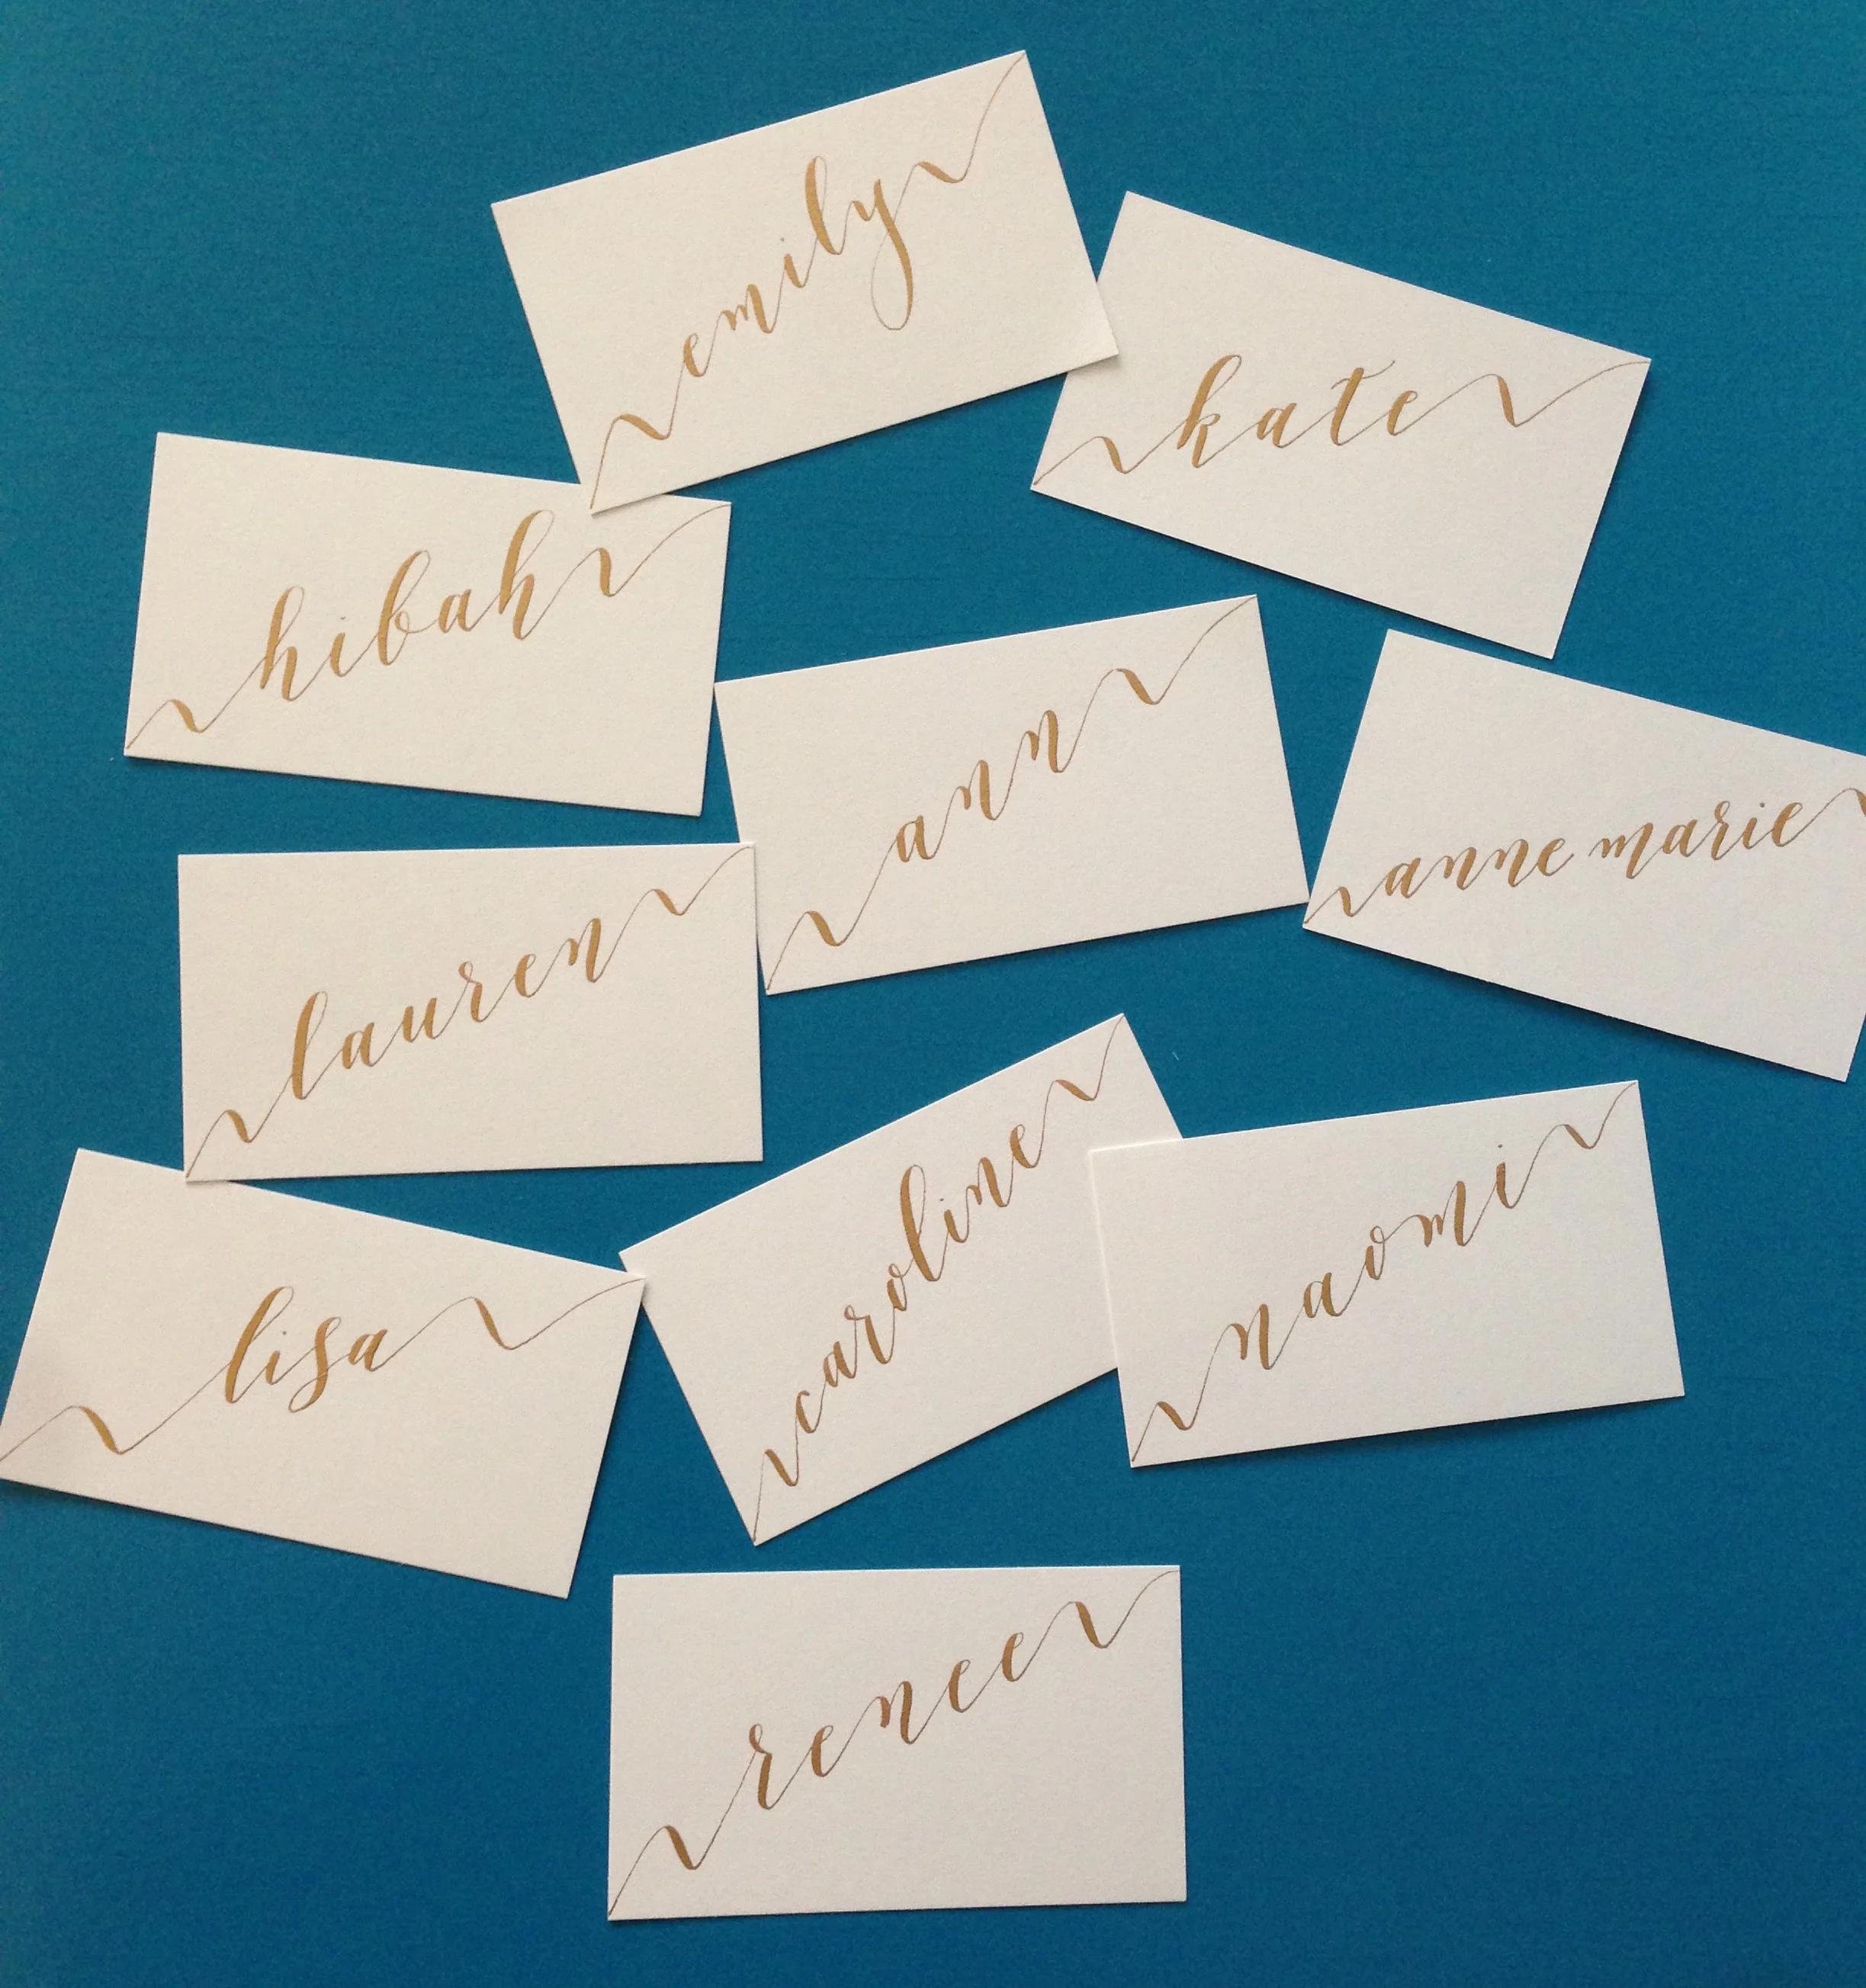 emily
kate
hibah
ann
anne marie
lauren
caroline
naomi
lisa
renee